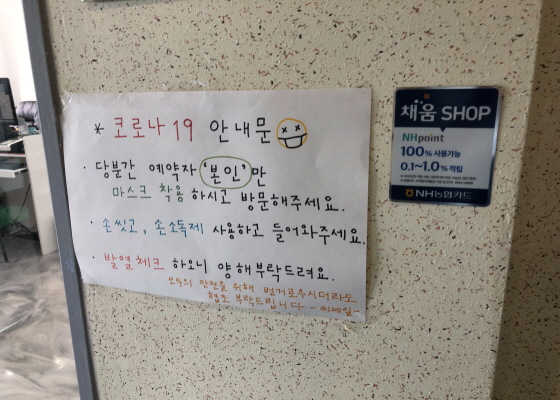 * 코로나 19 안내문
· 당분간 예약자 '본인'만
마스크 착용 하시고 방문해주세요.
· 손씻고, 손소독제 사용하고 들어와주세요.
· 발열체크 하오니 양해부탁드려요.
모두의 안전을 위해 번거로우시더라도
협조 부탁드립니다 - 씨네일-
채움 SHOP
NHpoint
100% 사용가능
0.1~1.0% 적립
NH농협카드